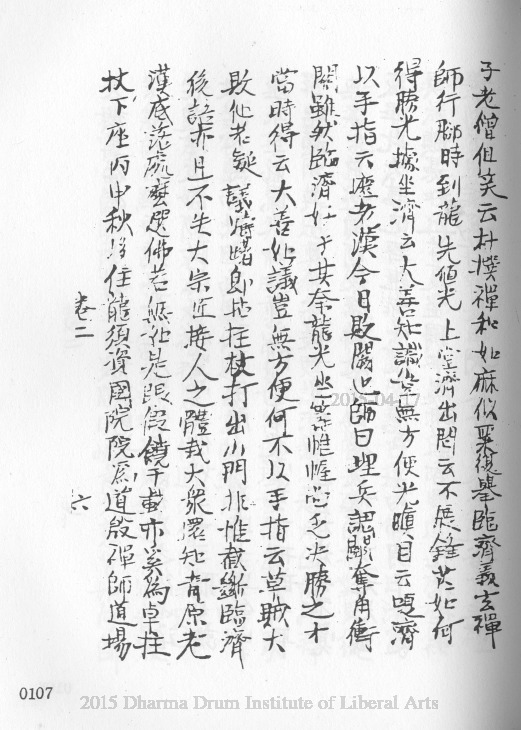 子老僧但笑云朴撲禪和如麻似粟後舉臨濟義玄禪
師行腳時到龍光值光上堂濟出問云不展鋒芒如何
得勝光據坐濟云大善知識豈無方便光瞋目云嗄濟
以手指云這老漢今日敗闕也師曰埋兵認鬪奪角衝
關雖然臨濟好手其奈龍光坐籌帷幄尚乏決勝之才
當時待云大善知識豈無方便何不以手指云草賊大
敗他若疑議濟踏即拈拄杖打出山門非惟截斷臨濟
後語亦且不失大宗匠接人之體哉大眾還知青原老
漢底落處麼選佛若無如是眼假饒千載亦奚為卓拄
杖下座丙申秋住龍須資國院院為道啟禪師道場
卷二
六
2015-04-17
0107
2015 Dharma Drum Institute of Liberal Arts